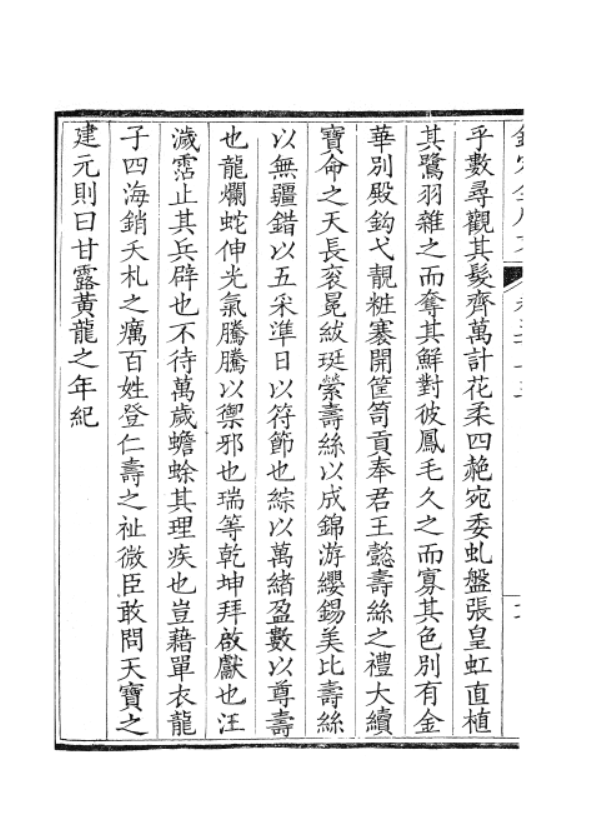 乎數尋觀其髮齊萬計花柔四葩宛委虬盤張皇虹直植
其鷺羽雜之而奪其鮮對彼鳳毛久之而寡其色別有金
華別殿鈎弋靚粧褰開筐笥貢奉君王懿壽絲之禮大續
寶命之天長衮冕紱珽縈壽絲以成錦游纓錫美比壽絲
以無疆錯以五采準日以符節也綜以萬緒盈數以尊壽
也龍爛蛇伸光氣騰騰以禦邪也瑞等乾坤拜啟獻也汪
濊霑止其兵辟也不待萬歲蟾蜍其理疾也豈藉單衣龍
子四海銷夭札之癘百姓登仁壽之祉微臣敢問天寶之
建元則曰甘露黃龍之年紀